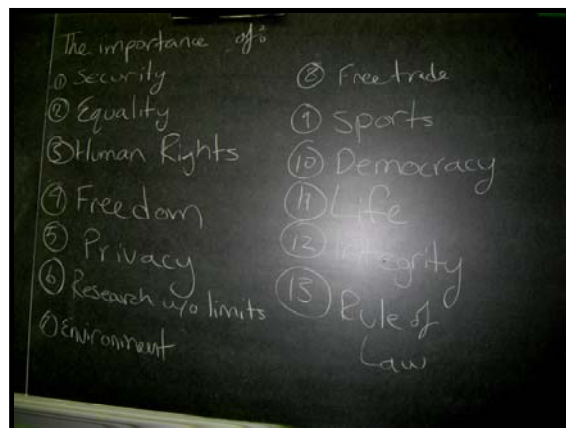 The importance of:
① Security
② Equality
③ Human Rights
④ Freedom
⑤ Privacy
⑥ Research w/o limits
⑦ Environment
⑧ Free trade
⑨ Sports
⑩ Democracy
⑪ Life
⑫ Integrity
⑬ Rule of
Law